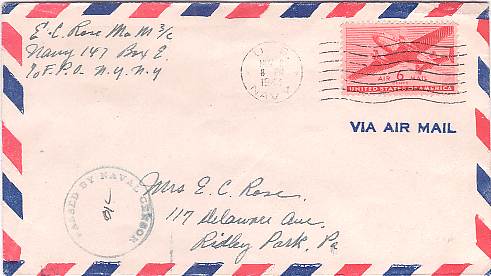 E. C. Rose Mo M 3/c
Navy 147 Box E.
℅ F.P.O- N.Y. N.Y
U.S.
NAVY
AIR 6¢ MAIL
UNITED STATES OF AMERICA
VIA AIR MAIL
PASSED BY NAVAL CENSOR
Mrs E. C. Rose.
117 Delaware Ave.
Ridley Park, Pa